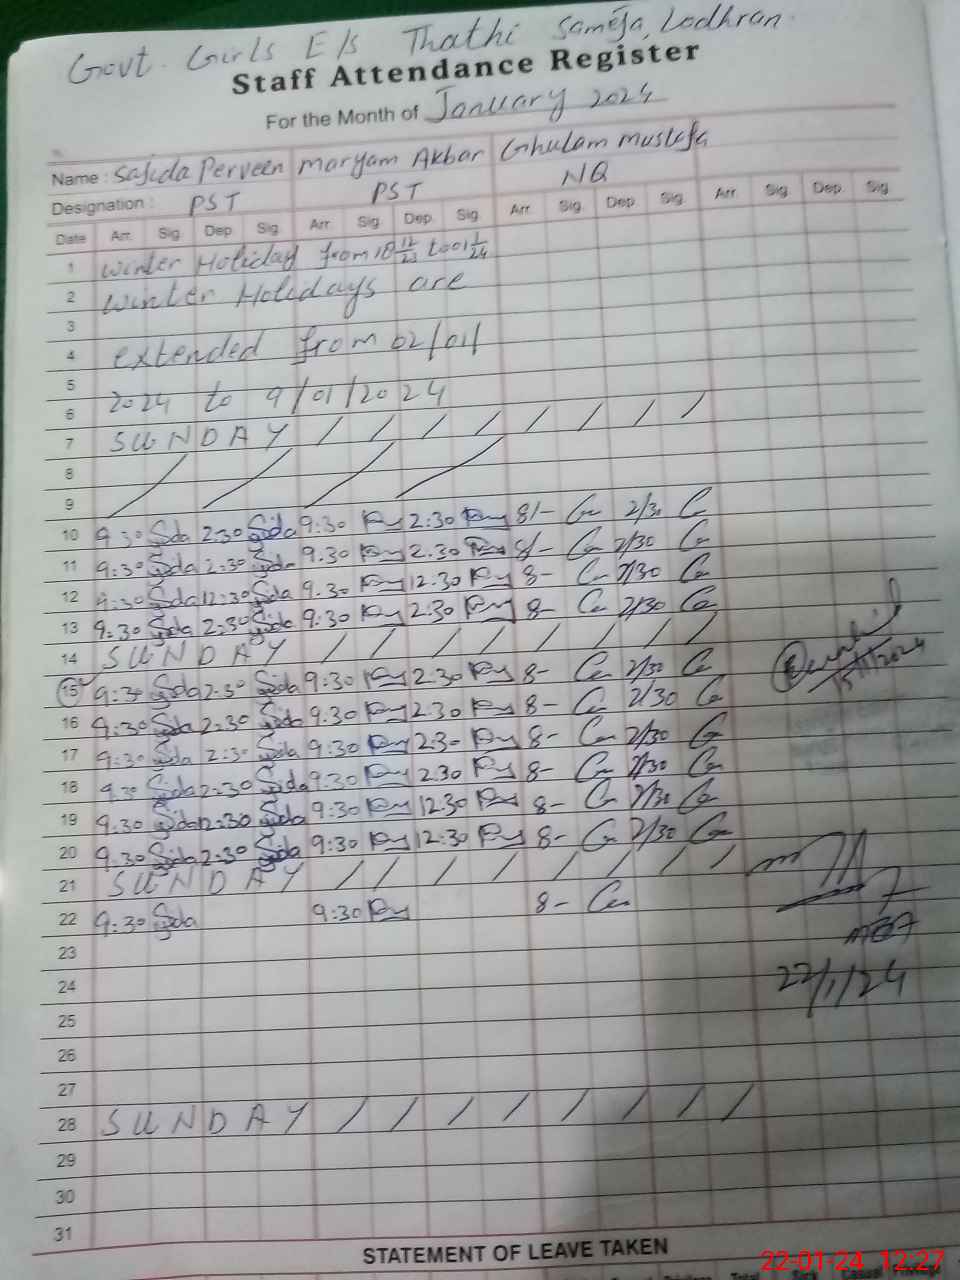 Govt. Girls E/s Thathi Sameja, Lodhran.
Staff Attendance Register
For the Month of January 2024
Name : Sajida Perveen Maryam Akbar Ghulam Mustafa
Designation : PST PST NQ
Date Arr. Sig. Dep. Sig. Arr. Sig. Dep. Sig. Arr. Sig. Dep. Sig. Arr. Sig. Dep. Sig.
1 Winter Holiday from 18 12/23 to 01 1/24
2 Winter Holidays are
3
4 extended from 02/01/
5
6 2024 to 9/01/2024
7 SUNDAY / / / / / / / /
8
9
10 9:30 Sda 2:30 Sda 9:30 2:30 8/- 2/30
11 9:30 Sda 2:30 Sda 9.30 2.30 8/- 2/30
12 9:30 Sda 12:30 Sda 9.30 12.30 8- 2/30
13 9.30 Sda 2:30 Sda 9:30 2:30 8- 2/30
14 SUNDAY / / / / / / / /
15 9:30 Sda 2:30 Sda 9:30 2:30 8- 2/30
15/1/2024
16 9:30 Sda 2:30 Sda 9:30 2:30 8- 2/30
17 9:30 Sda 2:30 Sda 9:30 2:30 8- 2/30
18 9.30 Sda 2:30 Sda 9:30 2:30 8- 2/30
19 9.30 Sda 12:30 Sda 9:30 12:30 8- 2/30
20 9.30 Sda 2:30 Sda 9:30 12:30 8- 2/30
21 SUNDAY / / / / / / / /
22 9:30 Sda 9:30 8-
23
24
22/1/24
25
26
27
28 SUNDAY / / / / / / / /
29
30
31
STATEMENT OF LEAVE TAKEN
22-01-24 12:27